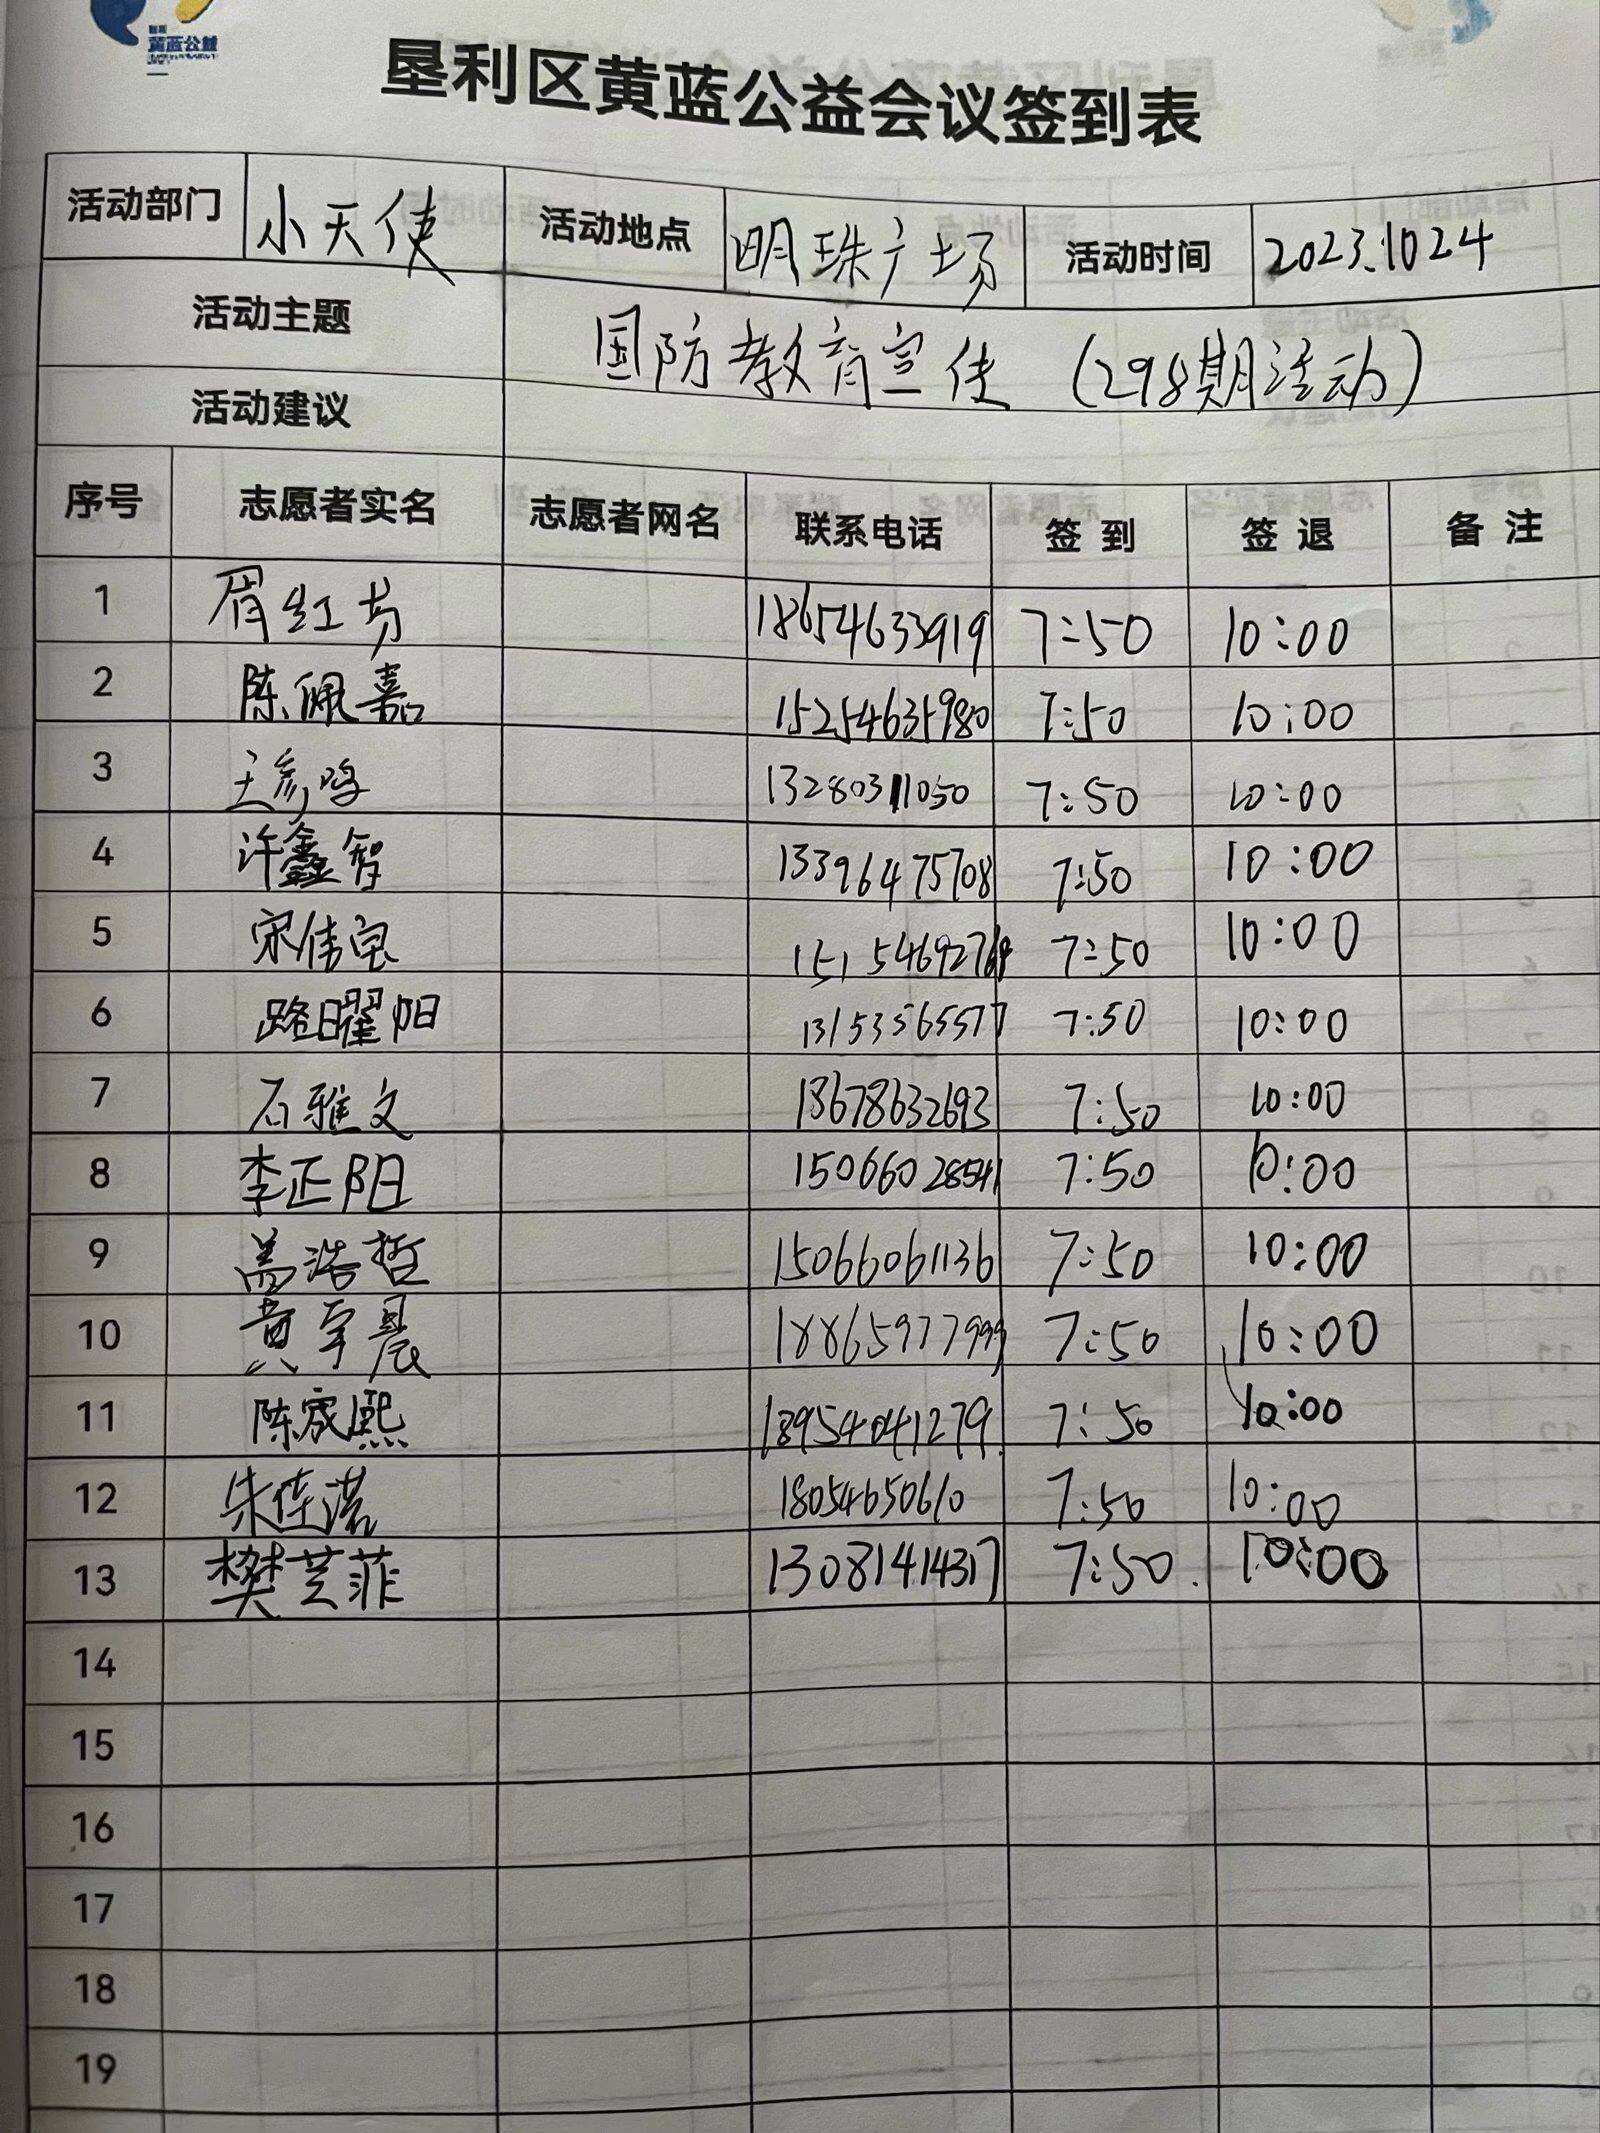 黄蓝公益
垦利区黄蓝公益会议签到表
活动部门 小天使 活动地点 明珠广场 活动时间 2023.1024
活动主题 国防教育宣传（298期活动）
活动建议
序号 志愿者实名 志愿者网名 联系电话 签到 签退 备注
1 红芳 18654633919 7:50 10:00
2 陈佩嘉 15254635980 7:50 10:00
3 王彦鸣 13280311050 7:50 10:00
4 许鑫智 13396475708 7:50 10:00
5 宋倩宜 7:50 10:00
6 路曜阳 13153565577 7:50 10:00
7 石雅文 13678632693 7:50 10:00
8 李正阳 15066028541 7:50 10:00
9 盖浩哲 15066061136 7:50 10:00
10 黄宇晨 18865977999 7:50 10:00
11 陈宬熙 18954041279 7:50 10:00
12 朱佳诺 18054650610 7:50 10:00
13 樊芝菲 13081414317 7:50 10:00
14
15
16
17
18
19